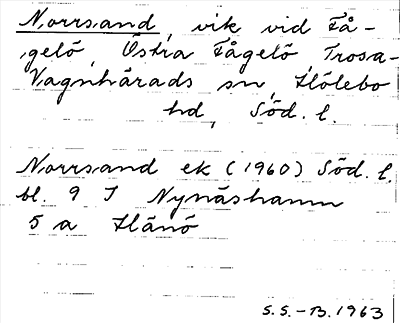 Norrsand, vik vid Få-
gelö, Östra Fågelö, Trosa-
Vagnhärads sn, Hölebo
hd, Söd. l.
Norrsand ek (1960) Söd. l.
bl. 9 I Nynäshamn
5 a Hånö
S.S.-B. 1963